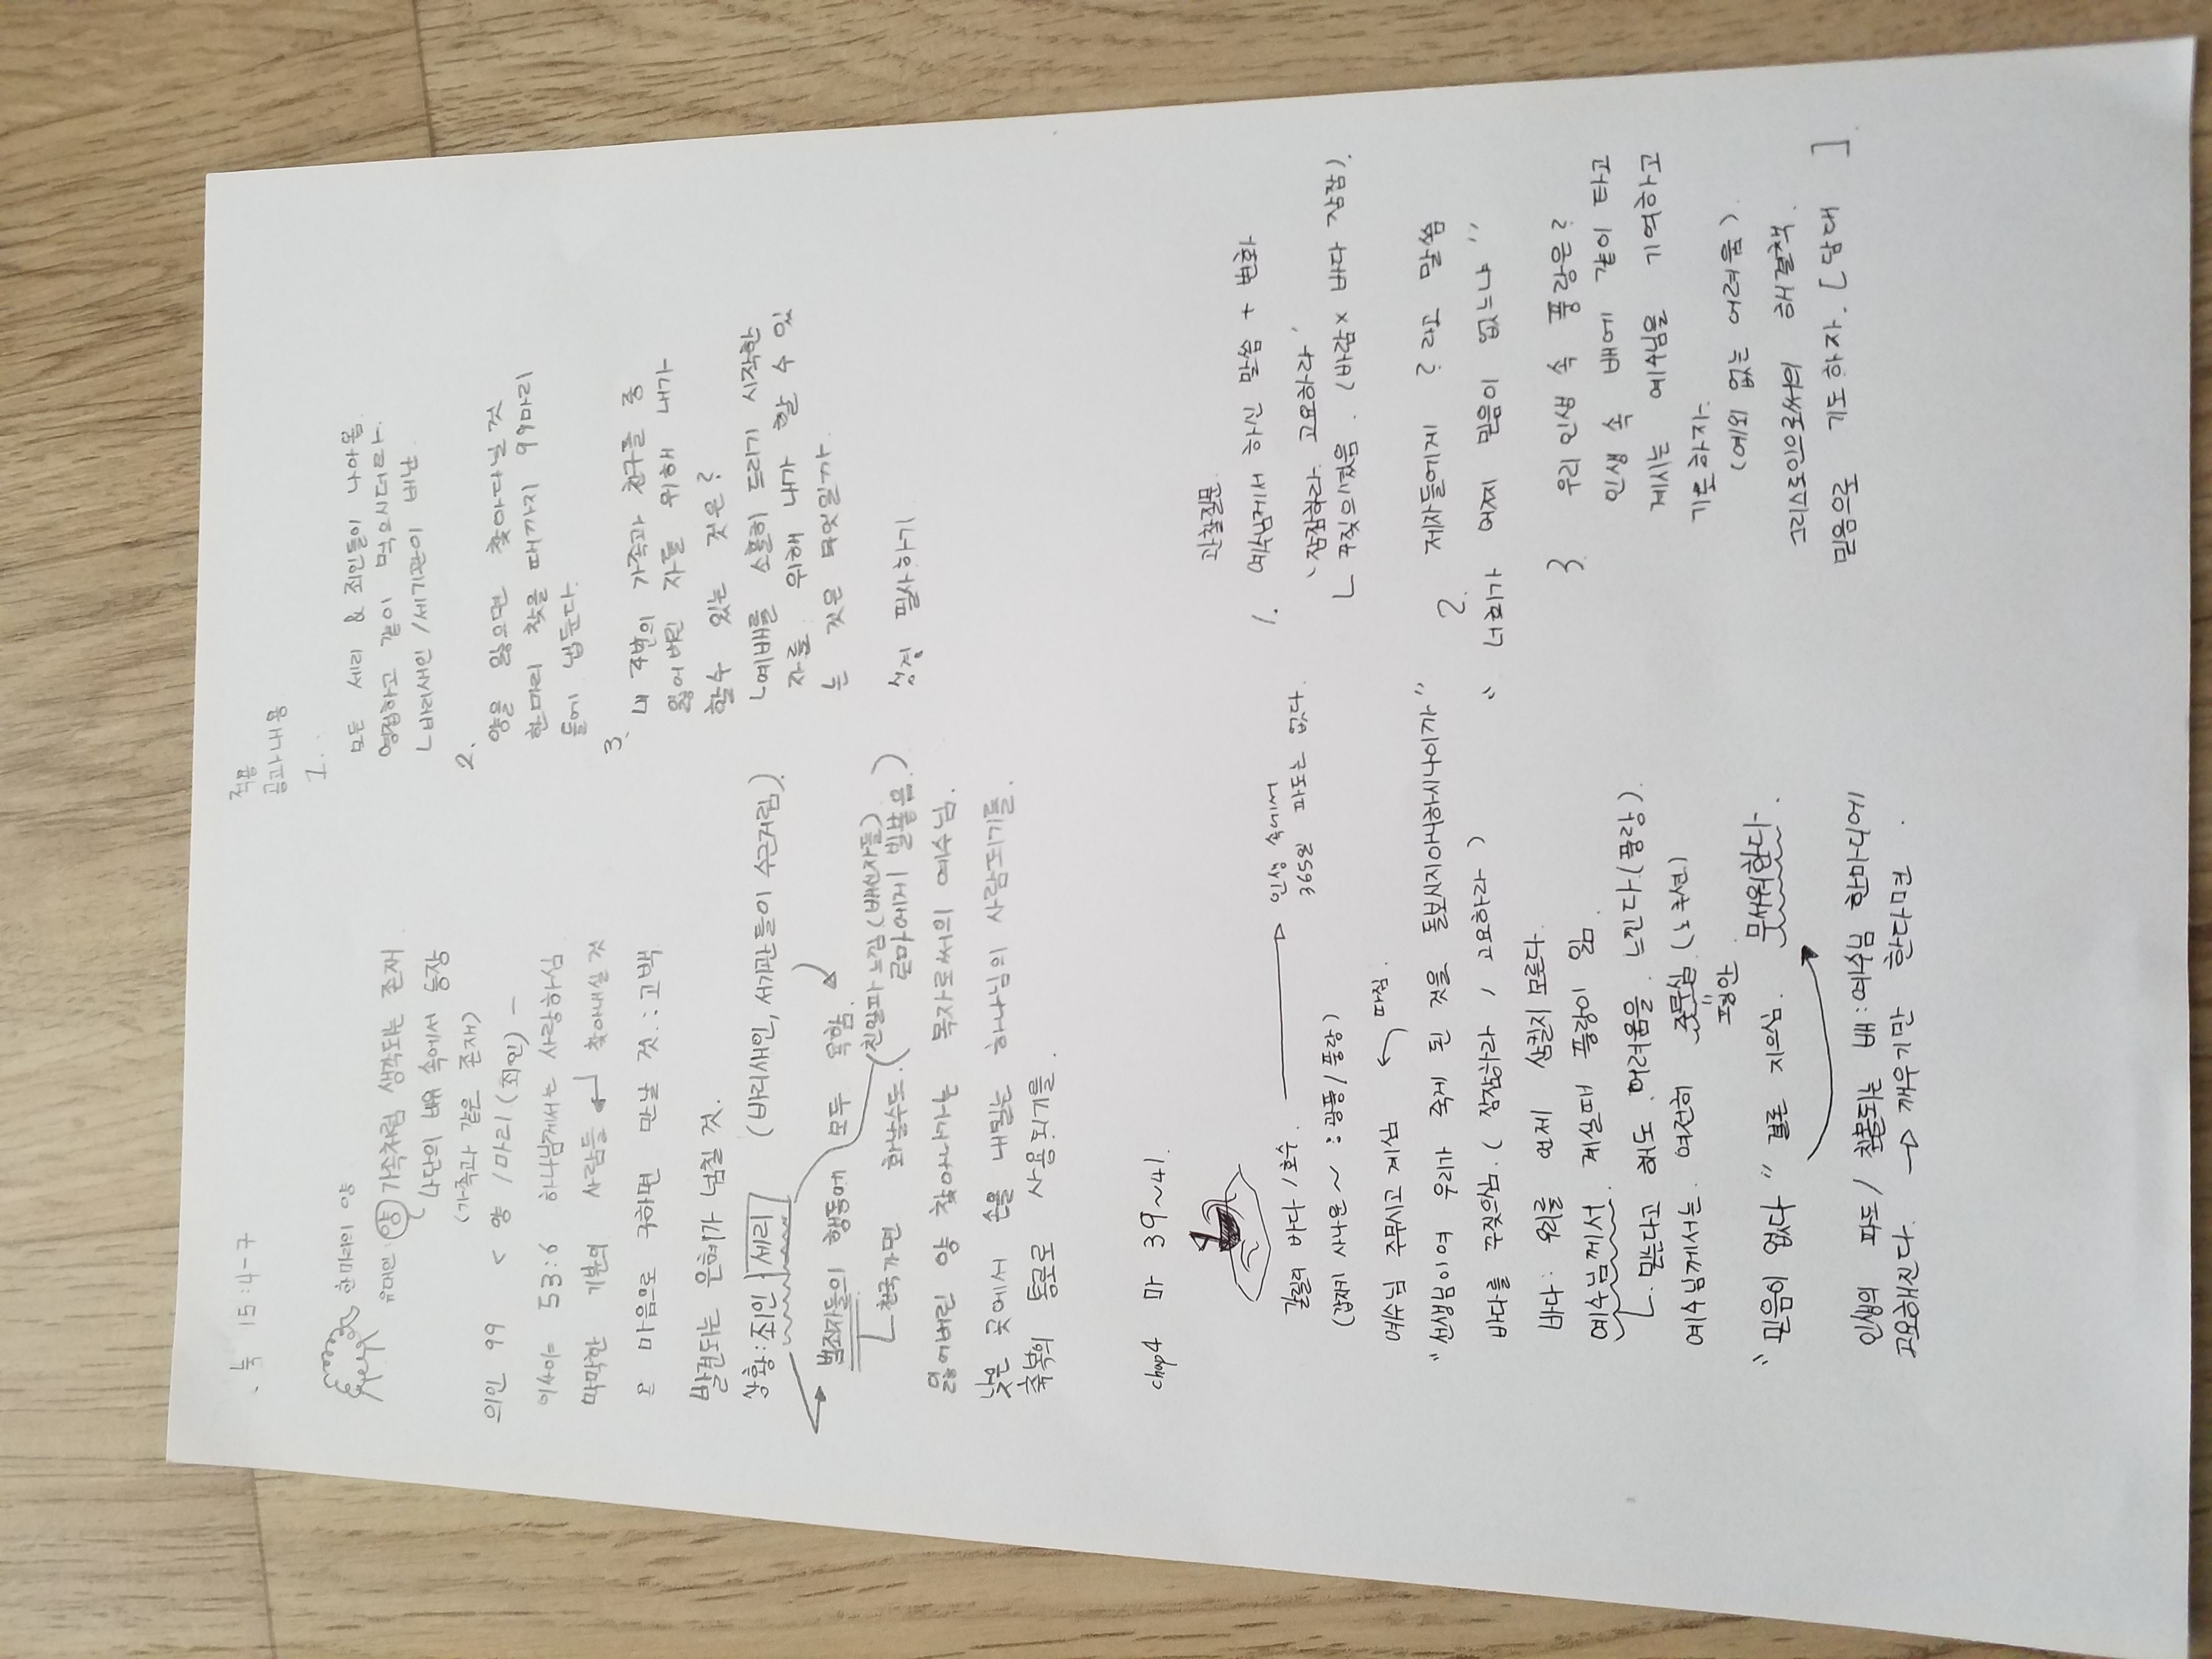 눅 15:4-7
한마리의 양
유대인: 양 가족처럼 생각되는 존재
나단의 배유 속에서 등장
(가족과 같은 존재)
의인 99 < 양 1마리 (죄인)
이사야 53:6 하나님께서는 사랑하심
막막한 기분의 사람들 찾아내실 것
온 마음으로 구하면 만날 것.: 고백
발견되는 은혜가 넘칠 것.
상황: 죄인 세리 (바리새인, 서기관들이 수근거림)
범죄자들의 행동에 모두 욕함.
천국가면 화날수도. (친일파 느낌 (배신자들)
로마에게 빌붙음.)
잃어버린 양 찾아나가는 목자로써의 예수님.
낮은 곳에서 손을 내밀는 하나님의 사람되기를.
축복의 통로로 사용되기를.
적용
공과내용
1.
모든 세리 & 죄인들이 나아옴.
영접하고 같이 먹으시더라.
ㄴ바리새인 / 세기관이 비난
2.
양을 잃으면 찾아다닐 것
한마리 찾을 때까지 99마리
들에 냅둔다.
3.
내 주변의 가족과 친구들 중
잃어버린 자들 위해 내가
할수 있는 것은?
ㄴ예배를 소홀히 드리기 시작한
자를 위해 내가 할 수 있
는 것은 무엇일까.
성경 필사하기
chap4 마 39~41.
갈릴리 바다 / 호수. 인생 속에서
365일 파도는 없다.
(갑제기 사나운~ : 광풍 / 풍랑)
예수님 주무시고 계심 따짐.
"선생님이여 우리가 죽게 된 것을 돌보시지아니하시나이까"
바다를 꾸짖으심. ( 잠잠하라 , 고요하라 )
바다: 우리를 언제 삼킬지 모른다.
예수님께서 계실때 풍랑이 잃.
ㄴ. 믿는다고 해도 어려움을 느낀다.(풍랑).
예수님께서는 여전히 주무심. (노곤션)
평안.
"믿음이 없다" 결론 지으심. 무서워한다.
인생의 파도 / 침몰되는 배: 예수님 한마디에
고요해진다. → 깨우기만 한다면.
관찰질문
1. 예수님께서 하신 말씀 + 변화
'잠잠하라 고요하라'
ㄴ 꾸짖으셨음. (바람× 바다 잠잠).
2. 제자들에게 ? 라고 말씀
"너희가 어찌 믿음이 없느냐"
3. 우리 인생 속 풍랑은?
인생 속 배에 같이 타고
계시는 예수님을 기억하고
기도하자.
(예외 없는 어려움)
그리스도인으로써의 해결책.
믿음으로 기도하자. [담대 ]